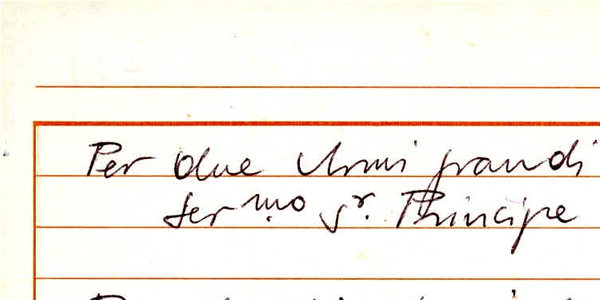 Per due Armi grandi
Ser.mo Sr. Principe